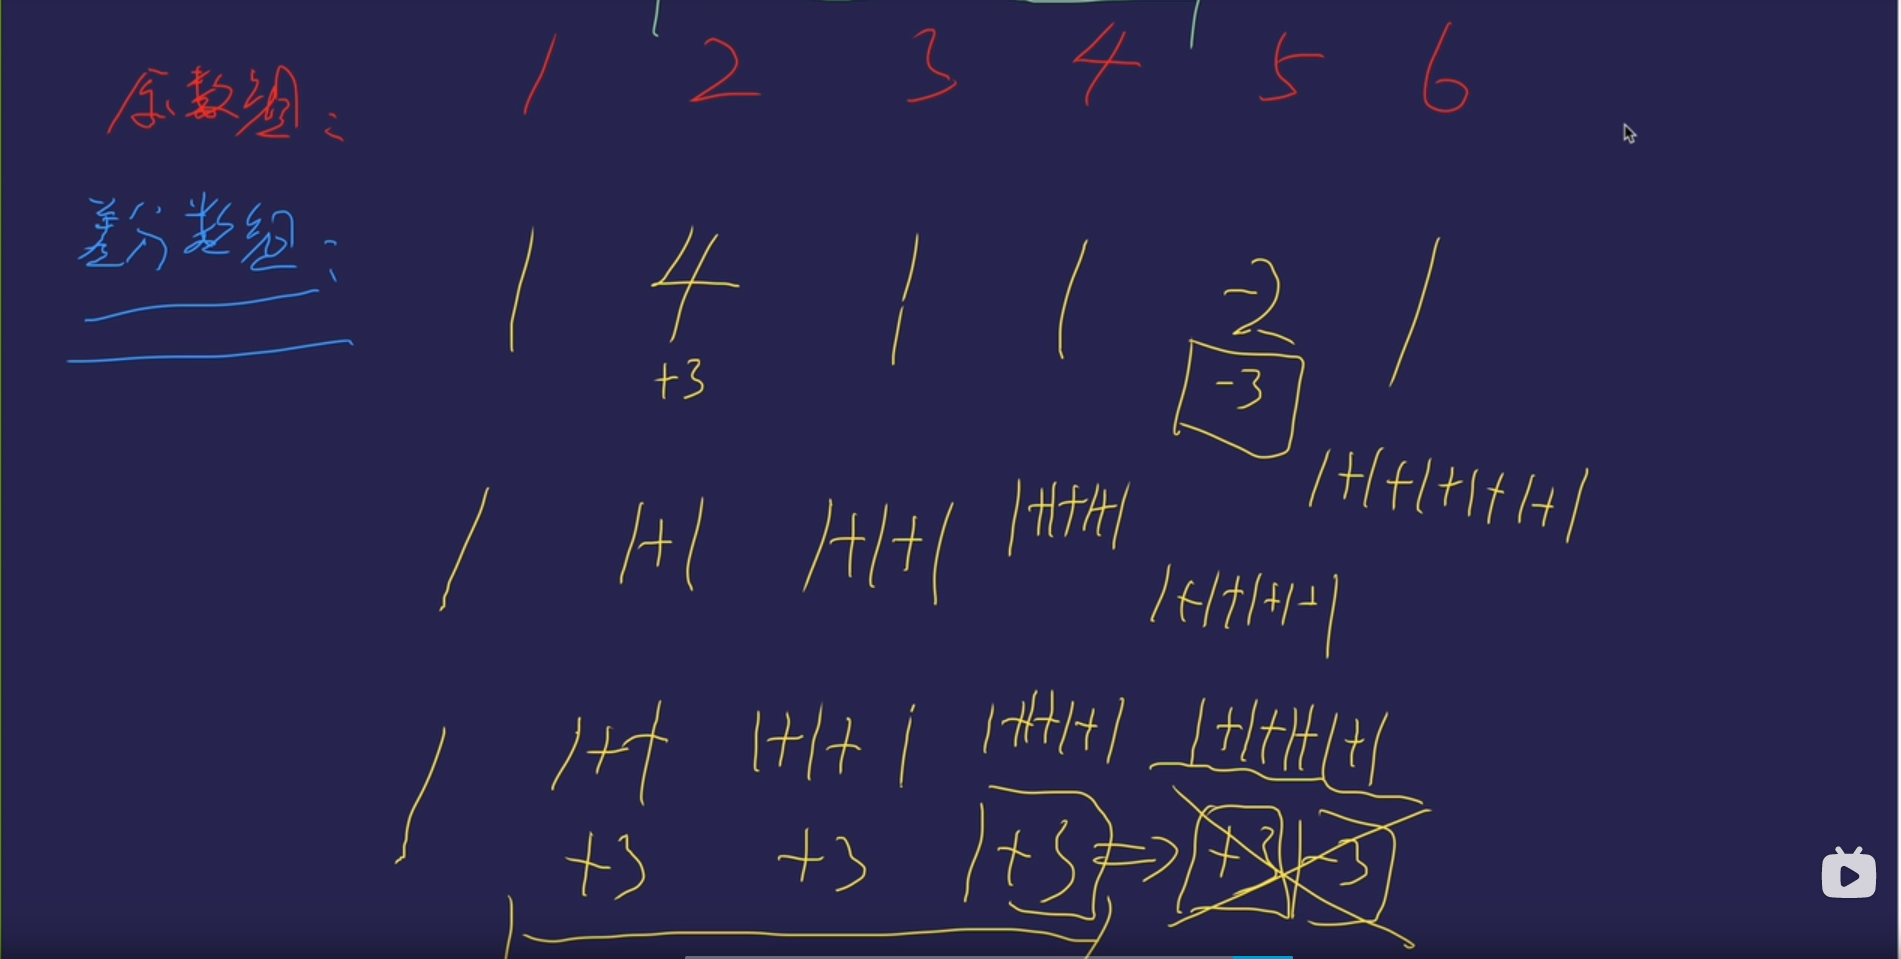 原数组: 1 2 3 4 5 6
差分数组: 1 4 1 1 -2 1
+3 -3
1 1+1 1+1+1 1+1+1+1 1+1+1+1+1 1+1+1+1+1+1
1 1+1 1+1+1 1+1+1+1 1+1+1+1+1
+3 +3 +3 => +3 -3